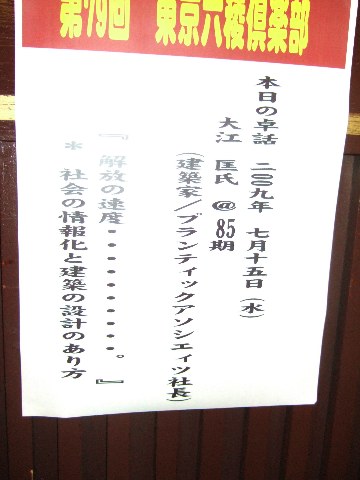 第79回 東京六稜倶楽部
本日の卓話 二〇〇九年 七月十五日(水)
大江 匡氏 @85期
(建築家/プランティックアソシエイツ社長)
『解放の速度・・・・・・・・。』
* 社会の情報化と建築の設計のあり方